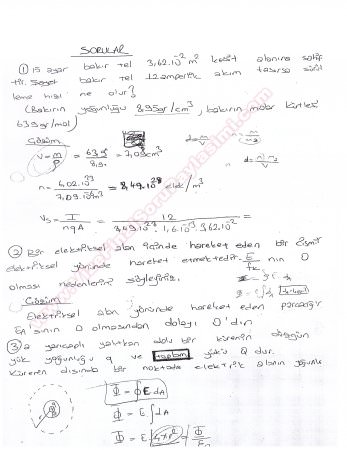 SORULAR
① 15 ayar bakır tel 3,62.10⁻² m² kesit alanına sahip
tir. bakır tel 12 amperlik akım taşırsa sürük
leme hızı ne olur?
(Bakırın yoğunluğu 8,95gr/cm³, bakırın molar kütlesi
63,5gr/mol)
Çözüm
V = m/ρ = 63,5/8,9. = 7,09cm³
d = m/V
n = 6,02.10²³/7,09.10⁻⁶m³ = 8,49.10²⁸ elek/m³
Vs = I/nqA = 12/8,49.10²⁸ 1,6.10⁻¹⁹ 3,62.10⁻² =
② Bir elektriksel alan içinde hareket eden bir cismin
elektriksel yönünde hareket etmektedir. nın 0
olması nedenlerini söyleyiniz.
Çözüm
Elektriksel alan yönünde hareket eden parçacığın
olmasından dolayı 0'dır.
③ a yarıçaplı yalıtkan dolu bir kürenin düzgün
yük yoğunluğu q ve toplam yükü Q dur.
Kürenin dışında bir noktada elektrik alanın
Φ = ∮E dA
Φ = E∫dA
Φ = E